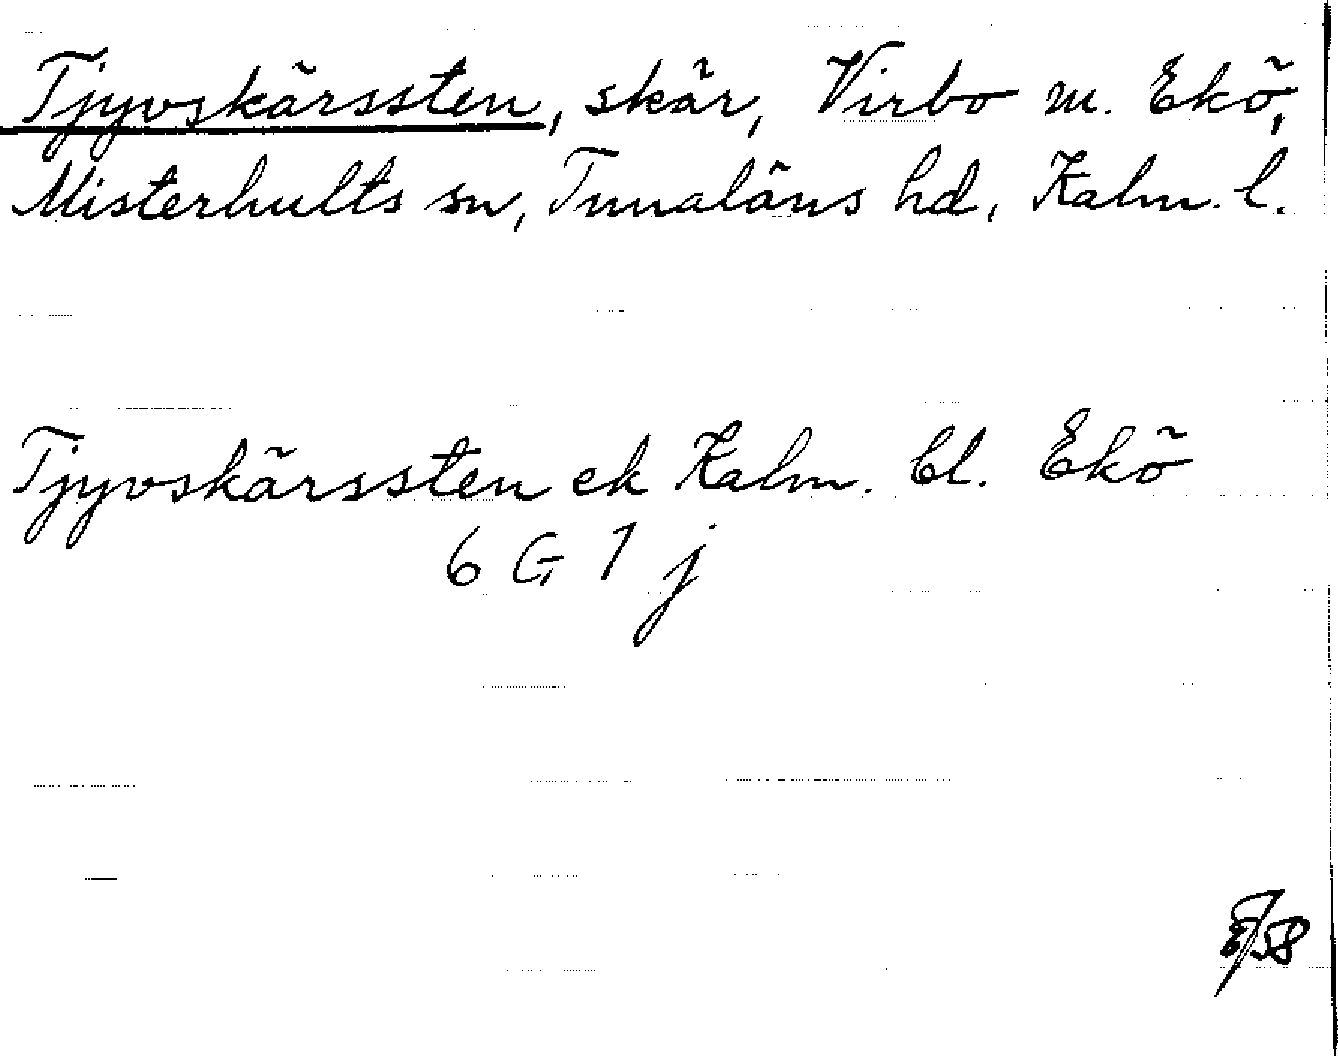 Tjyvskärssten, skär, Virbo m. Ekö,
Misterhults sn, Tunaläns hd, Kalm. l.
Tjyvskärssten ek Kalm. bl. Ekö
6 G 7 j